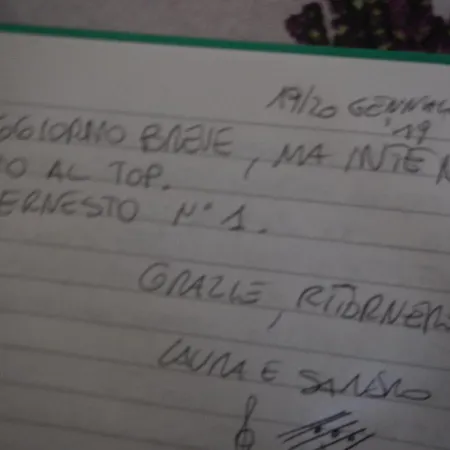 19/20 GENNA
'19
GGIORNO BREVE, MA INTEN
O AL TOP.
ERNESTO N° 1.
GRAZIE, RITORNER
LAURA E SANDRO